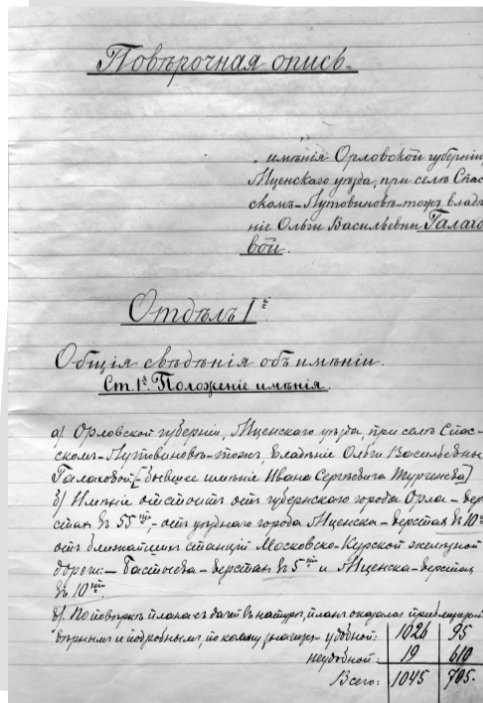 Повѣрочная опись.
имѣнія Орловской губерніи,
Мценскаго уѣзда, при селѣ Спас-
скомъ-Лутовиновѣ-тожъ, владѣ-
ніе Ольги Васильевны Галахо-
вой.
Отдѣлъ I.й
Общія свѣдѣнія объ имѣніи.
Ст. 1я Положеніе имѣнія.
а) Орловской губерніи, Мценскаго уѣзда, при селѣ Спас-
скомъ-Лутовиновѣ-тожъ, владѣніе Ольги Васильевны
Галаховой [-бывшее имѣніе Ивана Сергѣевича Тургенева]
б) Имѣніе отстоитъ отъ губернскаго города Орла - вер-
стахъ въ 55ти,- отъ уѣзднаго города Мценска - верстахъ въ 10ти
отъ ближайшихъ станцій Московско-Курской желѣзной
дороги:- Бастыева - верстахъ въ 5ти и Мценска - верстахъ
въ 10ти
в) По повѣркѣ плана съ дачей въ натурѣ, планъ оказался
вѣрнымъ и подробнымъ, по коему значится - удобной: 1026 95
неудобной: 19 610
Всего: 1045 705.